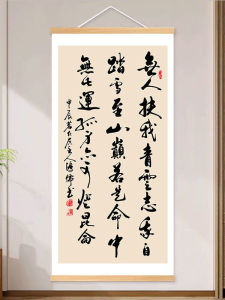 無人扶我青雲志我自
踏雪至山巔若是命中
無此運孤身亦可登昆侖
甲辰